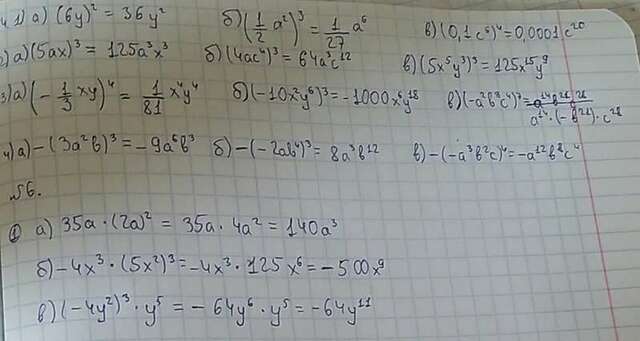 1) а) (6y)² = 36y² б) (1/2 a²)³ = 1/27 a⁶ в) (0,1c⁵)⁴ = 0,0001c²⁰
2) а) (5ax)³ = 125a³x³ б) (4ac⁴)³ = 64a³c¹² в) (5x⁵y³)³ = 125x¹⁵y⁹
3) а) (-1/3 xy)⁴ = 1/81 x⁴y⁴ б) (-10x²y⁶)³ = -1000x⁶y¹⁸ в) (-a²b³c⁴)⁷ =
a¹⁴·(-b²¹)·c²⁸
4) а) -(3a²b)³ = -9a⁶b³ б) -(-2ab⁴)³ = 8a³b¹² в) -(-a³b²c)⁴ = -a¹²b⁸c⁴
№6.
① а) 35a · (2a)² = 35a · 4a² = 140a³
б) -4x³ · (5x²)³ = -4x³ · 125x⁶ = -500x⁹
в) (-4y²)³ · y⁵ = -64y⁶ · y⁵ = -64y¹¹